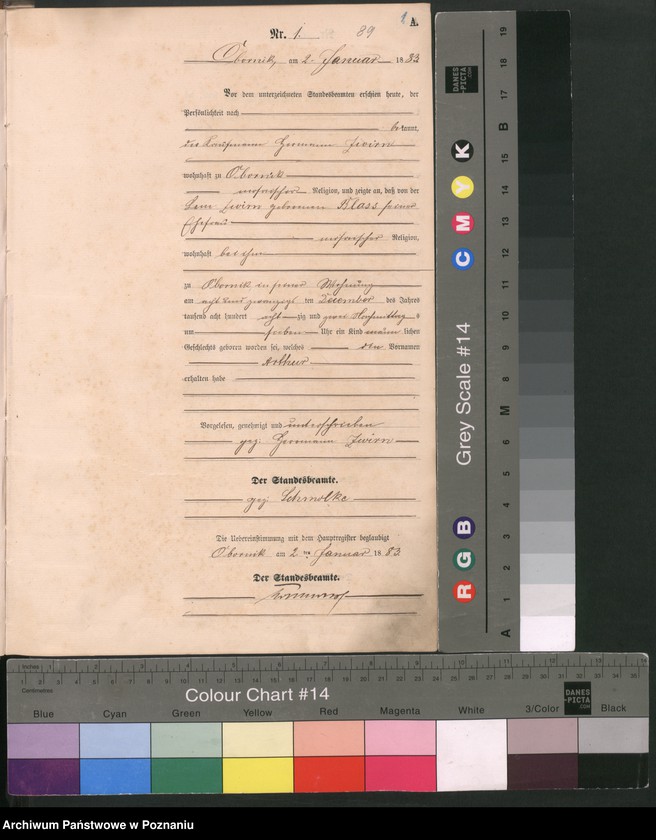 1 A.
Nr. 1. 89
Obornik, am 2. Januar 1883
Vor dem unterzeichneten Standesbeamten erschien heute, der
Persönlichkeit nach
bekannt,
der Kaufmann Hermann Zwirn
wohnhaft zu Obornik
mosaischer Religion, und zeigte an, daß von der
Zwirn geborenen Klass seiner
Ehefrau
mosaischer Religion,
wohnhaft bei ihm
zu Obornik in seiner Wohnung
am acht und zwanzigsten December des Jahres
tausend acht hundert acht zig und zwei Nachmittags
um sieben Uhr ein Kind männlichen
Geschlechts geboren worden sei, welches den Vornamen
Arthur
erhalten habe
Vorgelesen, genehmigt und unterschrieben
gez. Herrmann Zwirn
Der Standesbeamte.
gez. Schmolke
Die Uebereinstimmung mit dem Hauptregister beglaubigt
Obornik am 2ten Januar 1883
Der Standesbeamte.
DANES
-PICTA
.COM
Grey Scale #14
C M Y K
R G B
A 1 2 3 4 5 6 M 8 9 10 11 12 13 14 15 B 17 18 19
Inches 1 2 3 4 5 6 7 8 9 10 11 12 13 14
Centimetres
Colour Chart #14
DANES
-PICTA
.COM
Blue Cyan Green Yellow Red Magenta White 3/Color Black
Archiwum Państwowe w Poznaniu